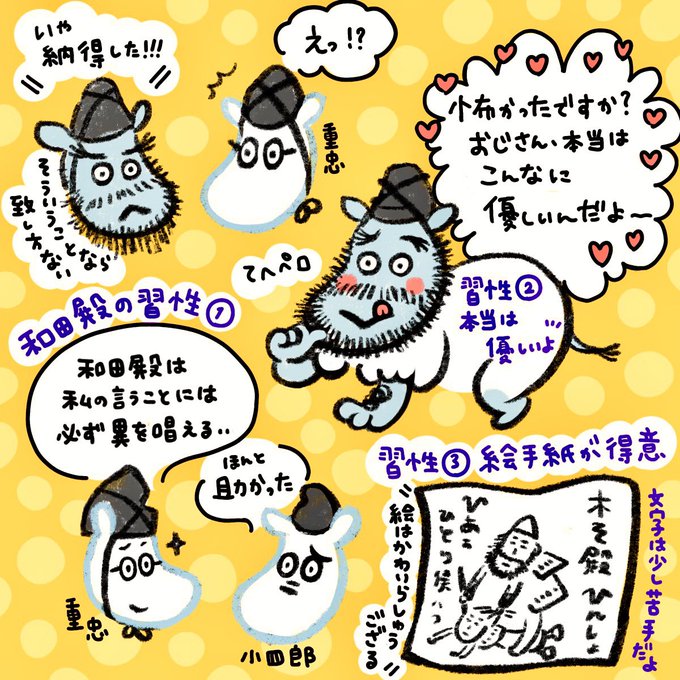 いや
納得した!!!
そういうことなら
致し方ない
えっ!?
重忠
小布かったですか?
おじさん、本当は
こんなに
優しいんだよー
てへペロ
和田殿の習性①
習性②
本当は…
優しいよ
和田殿は
私の言うことには
必ず異を唱える..
重忠
ほんと
助かった
小四郎
習性③ 絵手紙が得意
絵はかわいらしゅう
ござる
文字は少し苦手だよ
木そ殿
ひとつ